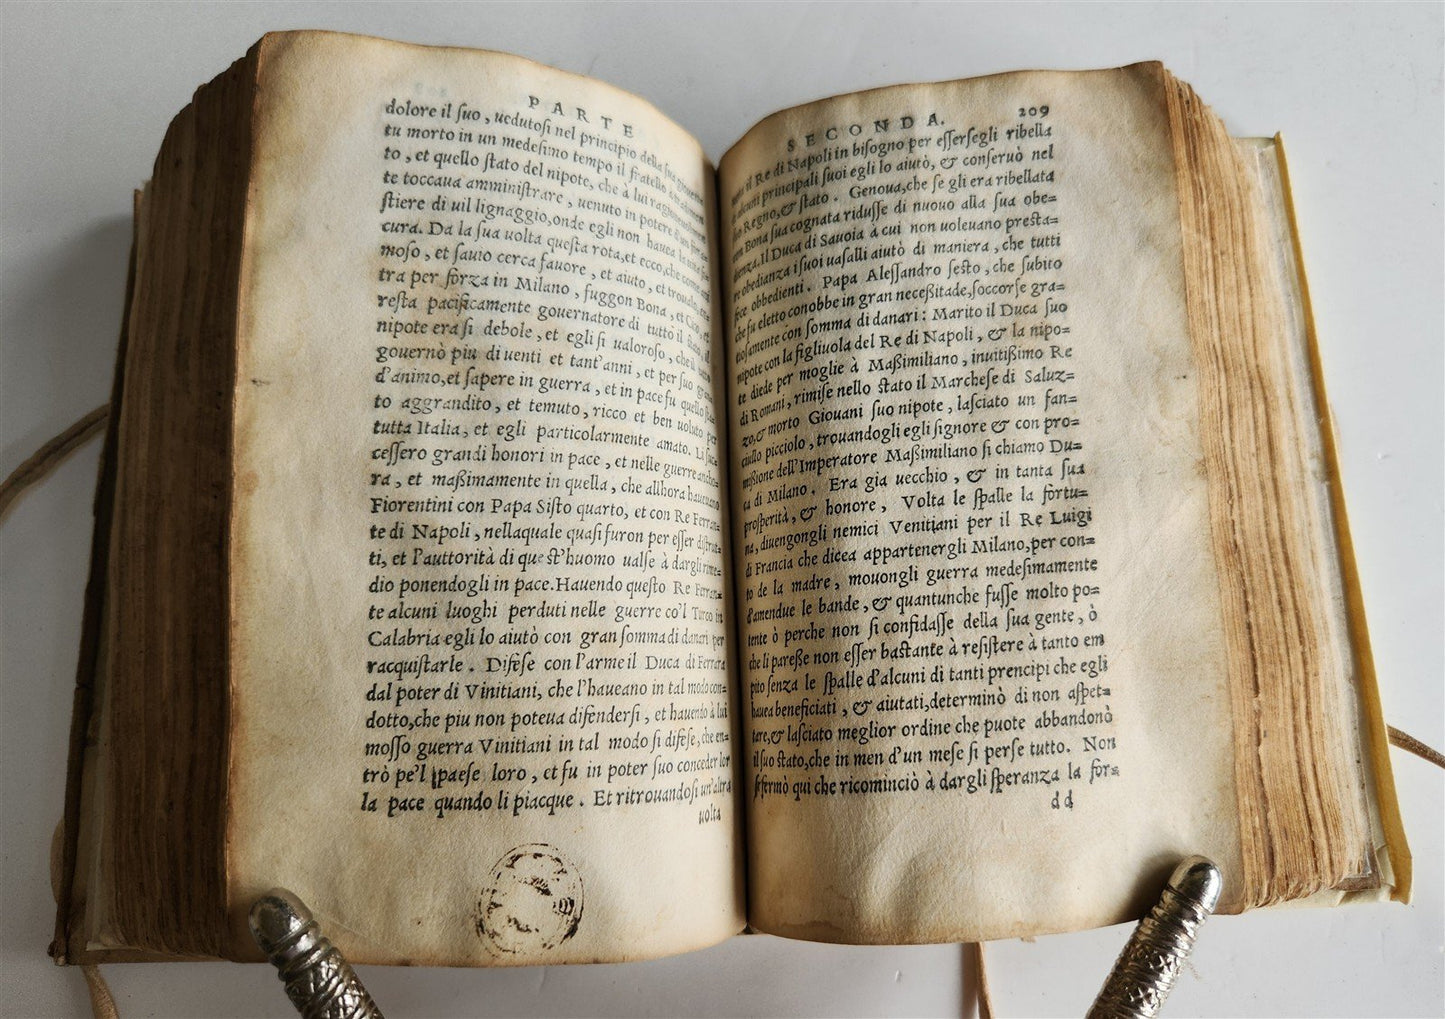 PARTE
dolore il ſuo, uedutoſi nel principio della ſua
tu morto in un medeſimo tempo il fratello
to, et quello ſtato del nipote, che à lui
te toccaua amminiſtrare, uenuto in potere d'un
ſtiere di uil lignaggio, onde egli non hauea
cura. Da la ſua uolta queſta rota, et ecco, che come
moſo, et ſauio cerca fauore, et aiuto, et
tra per forza in Milano, fuggon Bona, et
reſta pacificamente gouernatore di tutto il ſtato, il
nipote era ſi debole, et egli ſi ualoroſo, che il tutto
gouernò piu di uenti et tant'anni, et per ſuo
d'animo, et ſapere in guerra, et in pace fu quello
to aggrandito, et temuto, ricco et ben uoluto per
tutta Italia, et egli particolarmente amato. Li ſuc=
ceſſero grandi honori in pace, et nelle guerre ancho=
ra, et maßimamente in quella, che allhora haueuano
Fiorentini con Papa Siſto quarto, et con Re Ferran=
te di Napoli, nellaquale quaſi furon per eſſer diſtrut=
ti, et l'auttorità di queſt'huomo ualſe à dargli rime=
dio ponendogli in pace. Hauendo queſto Re Ferran=
te alcuni luoghi perduti nelle guerre co'l Turco in
Calabria egli lo aiutò con gran ſomma di danari per
racquiſtarle. Difeſe con l'arme il Duca di Ferrara
dal poter di Vinitiani, che l'haueano in tal modo con=
dotto, che piu non poteua difenderſi, et hauendo à lui
moſſo guerra Vinitiani in tal modo ſi difeſe, che en=
trò pe'l paeſe loro, et fu in poter ſuo conceder lor
la pace quando li piacque. Et ritrouandoſi un'altra
uolta
SECONDA. 209
il Re di Napoli in biſogno per eſſerſegli ribella
alcuni principali ſuoi egli lo aiutò, & conſeruò nel
ſuo Regno, & ſtato. Genoua, che ſe gli era ribellata
Bona ſua cognata riduſſe di nuouo alla ſua obe=
dienza. Il Duca di Sauoia à cui non uoleuano preſta=
re obedianza i ſuoi uaſalli aiutò di maniera, che tutti
fece obbedienti. Papa Aleſſandro ſeſto, che ſubito
che fu eletto conobbe in gran neceßitade, ſoccorſe gra=
tioſamente con ſomma di danari: Marito il Duca ſuo
nipote con la figliuola del Re di Napoli, & la nipo=
te diede per moglie à Maßimiliano, inuitißimo Re
di Romani, rimiſe nello ſtato il Marcheſe di Saluz=
zo, & morto Giouani ſuo nipote, laſciato un fan=
ciullo picciolo, trouandogli egli ſignore & con pro=
mißione dell'Imperatore Maßimiliano ſi chiamo Du=
ca di Milano. Era gia uecchio, & in tanta ſua
proſperità, & honore, Volta le ſpalle la fortu=
na, diuengongli nemici Venitiani per il Re Luigi
di Francia che dicea appartenergli Milano, per con=
to de la madre, mouongli guerra medeſimamente
d'amendue le bande, & quantunche fuſſe molto po=
tente ò perche non ſi confidaſſe della ſua gente, ò
che li pareße non eſſer baſtante à reſiſtere à tanto em
pito ſenza le ſpalle d'alcuni di tanti prencipi che egli
hauea beneficiati, & aiutati, determinò di non aſpet=
tare, & laſciato meglior ordine che puote abbandonò
il ſuo ſtato, che in men d'un meſe ſi perſe tutto. Non
ſi fermò qui che ricominciò à dargli ſperanza la for=
dd